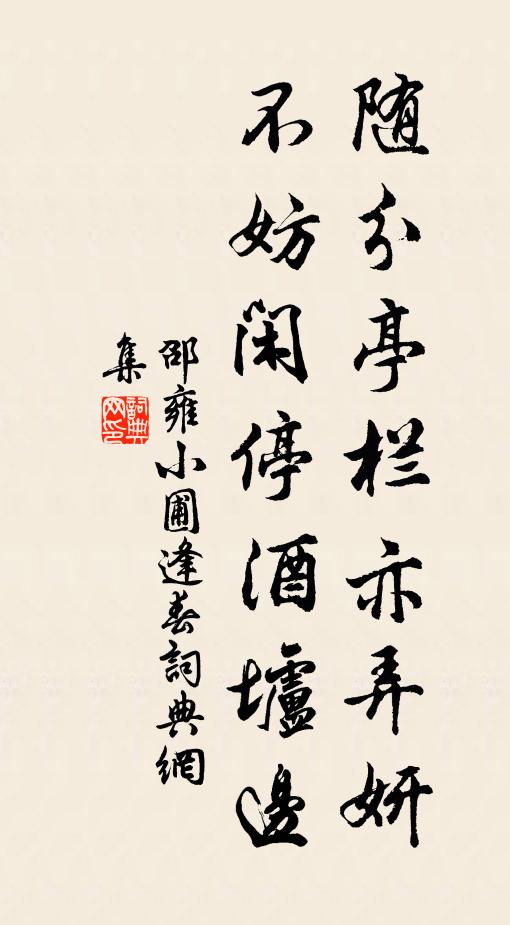 随分亭栏亦弄妍
不妨闲停酒壚邊
邵雍小圃逢春詞典網
集
詞典
网印